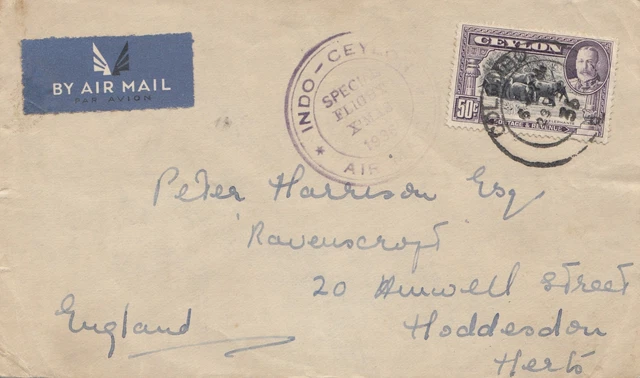 BY AIR MAIL
PAR AVION
INDO - CEYLON
SPECIAL
FLIGHT
AIR
CEYLON
50 c
POSTAGE & REVENUE
COLOMBO
Peter Harrison Esq
Ravenscroft
20 Amwell Street
Hoddesdon
Herts
England